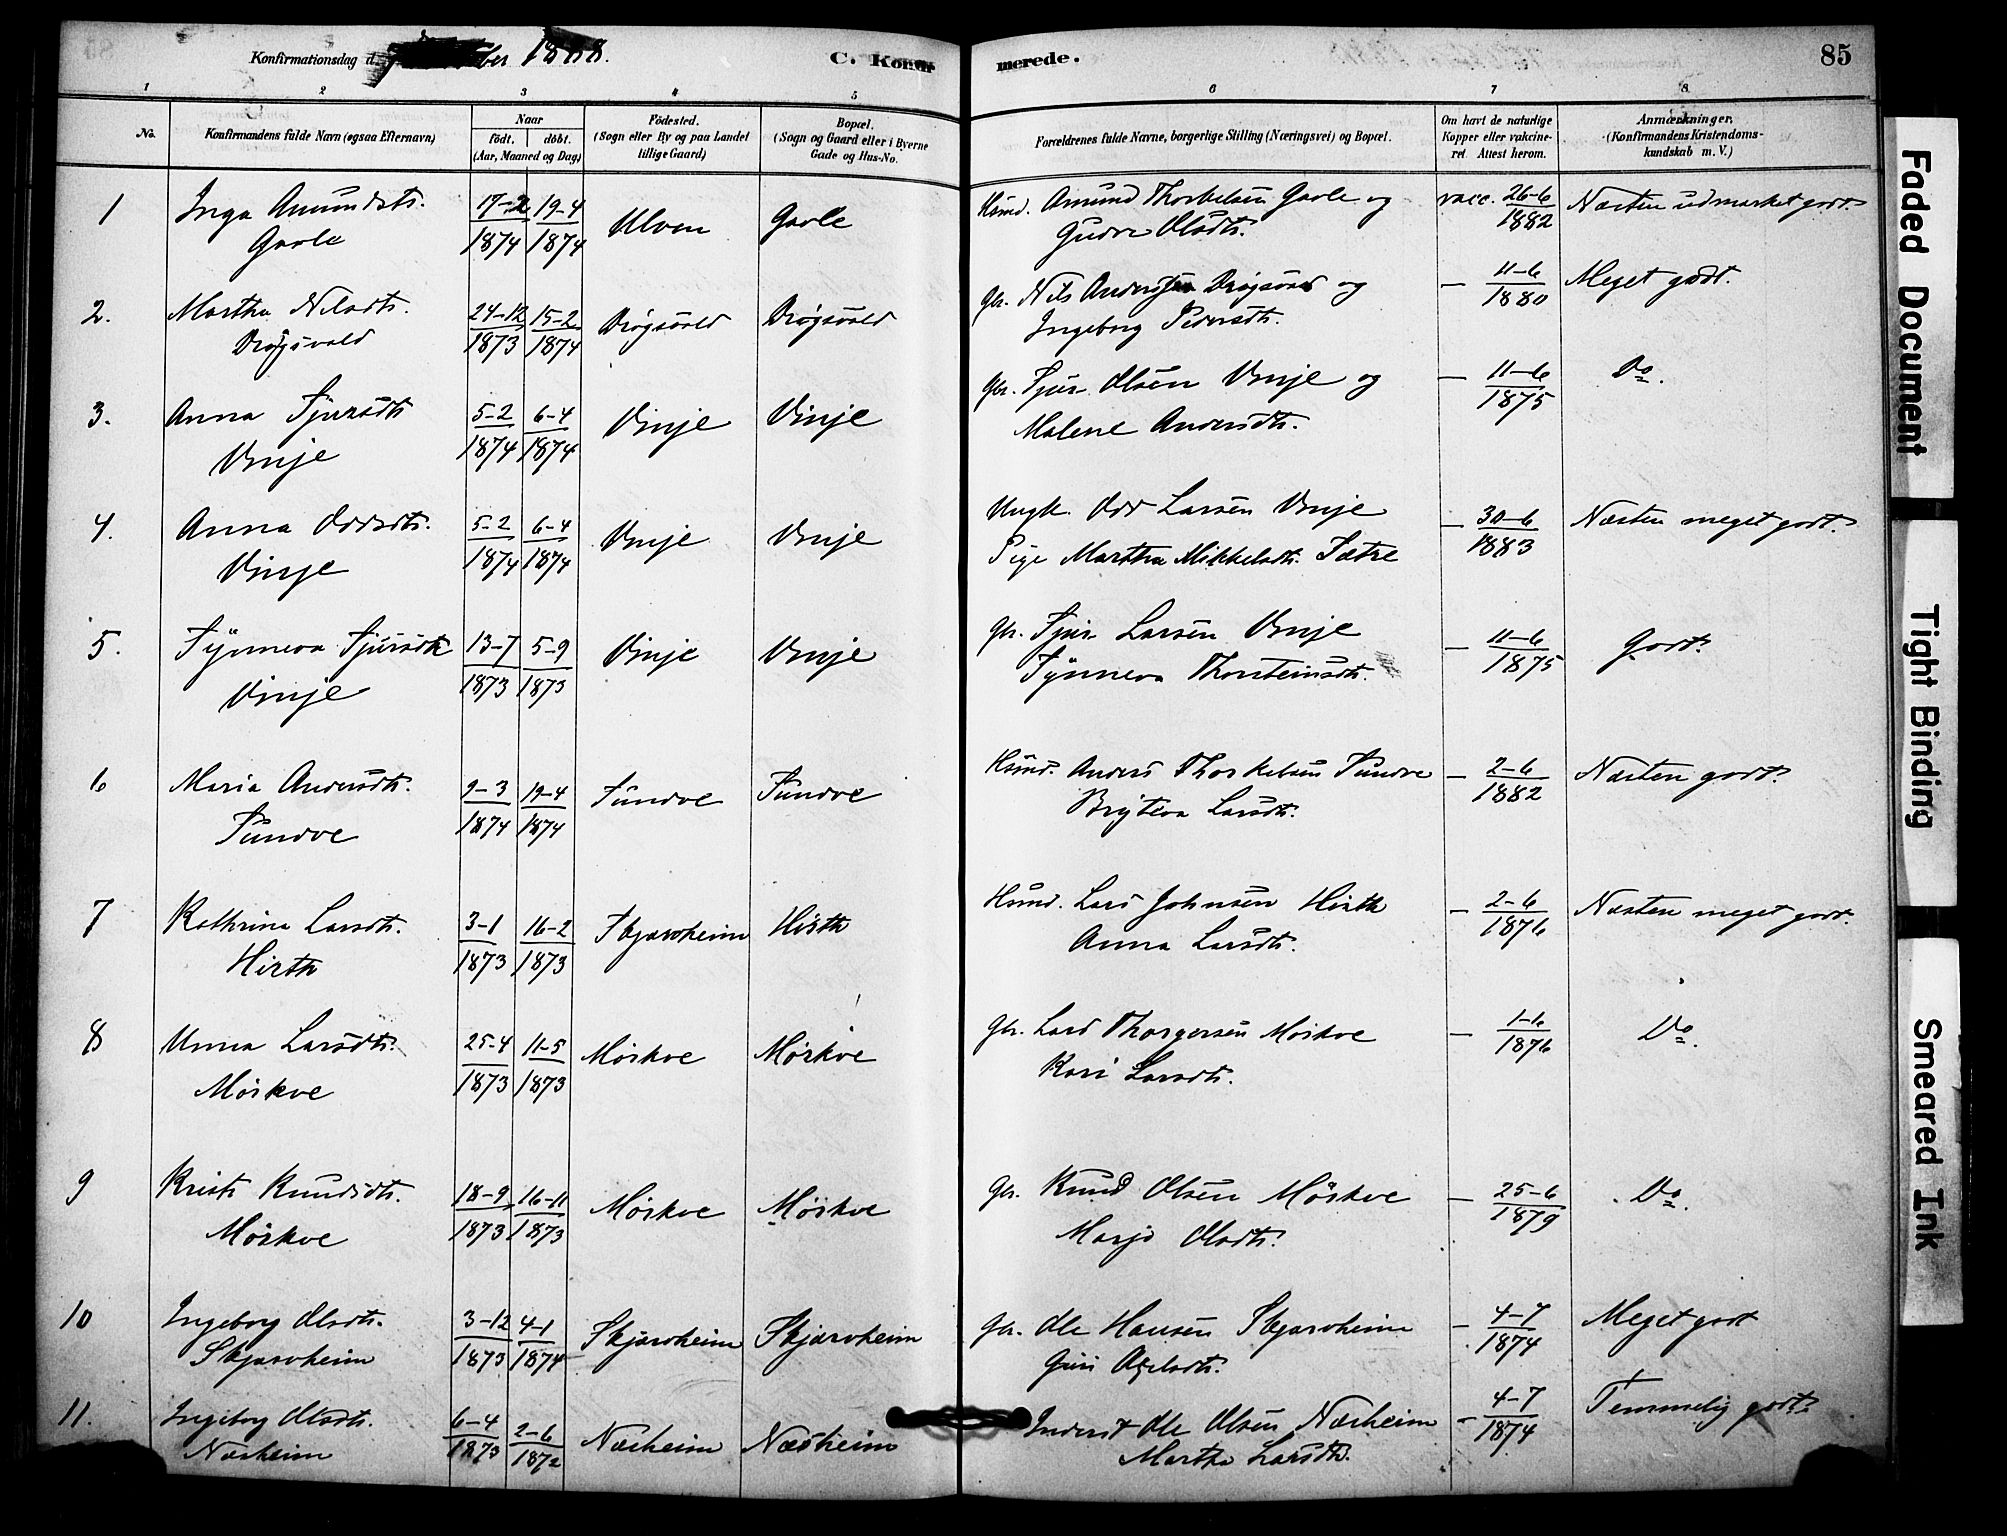 Konfirmationsdag d. 1888. C. Konfir
merede. 85
1 2 3 4 5 6 7 8
No. Konfirmandens fulde Navn (ogsaa Efternavn) Naar födt. döbt. (Aar, Maaned og Dag) Födested. (Sogn eller By og paa Landet tillige Gaard) Bopæl. (Sogn og Gaard eller i Byerne Gade og Hus-No.
Forældrenes fulde Navne, borgerlige Stilling (Næringsvei) og Bopæl. Om havt de naturlige Kopper eller vakcineret. Attest herom. Anmærkninger. (Konfirmandens Kristendomskundskab m. V.)
1 Inga Amundsdtr. 17-2 19-4 Ulven Gavle Husmd. Amund Thorkelsen Gavle og vacc. 26-6 Næsten udmærket godt.
Gavle 1874 1874 Gudve Olsdtr. 1882
2. Martha Nilsdtr. 24-12 15-2 Drøgsvold Drøgsvold Gbr. Nils Anderssen Drøgsvold og — 11-6 Meget godt.
Drøgsvold 1873 1874 Ingeborg Pedersdtr. 1880
3. Anna Sjursdtr 5-2 6-4 Vinje Vinje Gbr. Sjur Olsen Vinje og — 11-6 Do.
Vinje 1874 1874 Malene Andersdtr. 1875
4. Anna Oddsdtr. 5-2 6-4 Vinje Vinje Ungk. Odd Larsen Vinje — 30-6 Næsten meget godt.
Vinje 1874 1874 Pige Martha Mikkelsdtr. Sætre 1883
5. Synneva Sjursdtr 13-7 5-9 Vinje Vinje Gbr. Sjur Larsen Vinje — 11-6 Godt.
Vinje 1873 1873 Synneva Thorsteinsdtr. 1875
6 Maria Andersdtr. 9-3 19-4 Sundve Sundve Husmd. Anders Thorkelsen Sundve — 2-6 Næsten godt.
Sundve 1874 1874 Bryteva Larsdtr. 1882
7 Kathrina Larsdtr. 3-1 16-2 Skjerveheim Hirth Husmd. Lars Johnsen Hirth — 2-6 Næsten meget godt.
Hirth 1873 1873 Anna Larsdtr. 1876
8 Unna Larsdtr. 25-4 11-5 Mørkve Mørkve Gbr. Lars Thorgersen Mørkve — 1-6 Do.
Mørkve 1873 1873 Kari Larsdtr. 1876
9 Kristi Knudsdtr. 18-9 16-11 Mørkve Mørkve Gbr. Knud Olsen Mørkve — 25-6 Do.
Mørkve 1873 1873 Marjo Olsdtr. 1879
10 Ingeborg Olsdtr. 3-12 4-1 Skjærvheim Skjærvheim Gbr. Ole Hansen Skjærvheim — 4-7 Meget godt
Skjærvheim 1873 1874 Guri 1874
11. Ingeborg Olsdtr. 6-4 2-6 Næsheim Næsheim Inderst Ole Olsen Næsheim — 4-7 Temmelig godt.
Næsheim 1873 Martha Larsdtr. 1874
Faded Document
Tight Binding
Smeared Ink